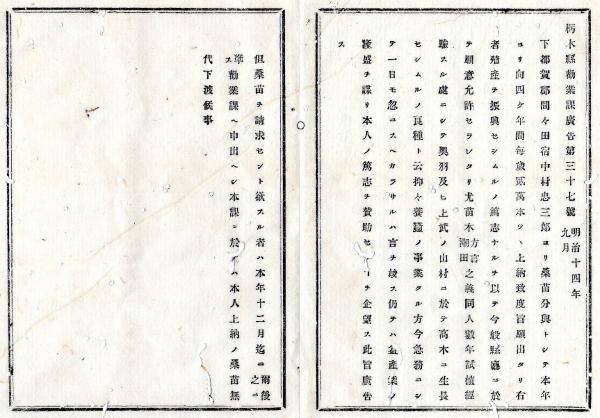 栃木縣勸業課廣告第三十七號 明治十四年九月
下都賀郡間々田宿中村忠三郎ヨリ桑苗分與トシテ本年
ヨリ向四ケ年間毎歳貳萬本ツヽ上納致度旨願出タリ右
者殖産ヲ振興セシムルノ篤志ナルヲ以テ今般縣廳ニ於
テ願意允許セラレタリ尤苗木方言潮田之義同人數年試植經
驗スル處ニシテ奥羽及ヒ上武ノ山村ニ於テ高木ニ生長
セシムルノ良種ト云抑々養蠶ノ事業タル方今急務ニシ
テ一日モ忽ニスヘカラサルハ言ヲ竢ス仍テハ益産業ノ
隆盛ヲ謀リ本人ノ篤志ヲ賛助セ ヿヲ企望ス此旨廣告
ス
但桑苗ヲ請求セント欲スル者ハ本年十二月迄ニ爾後之ニ
準ス勸業課ヘ申出ヘシ本課ニ於 ハ本人上納ノ桑苗無
代下渡候事